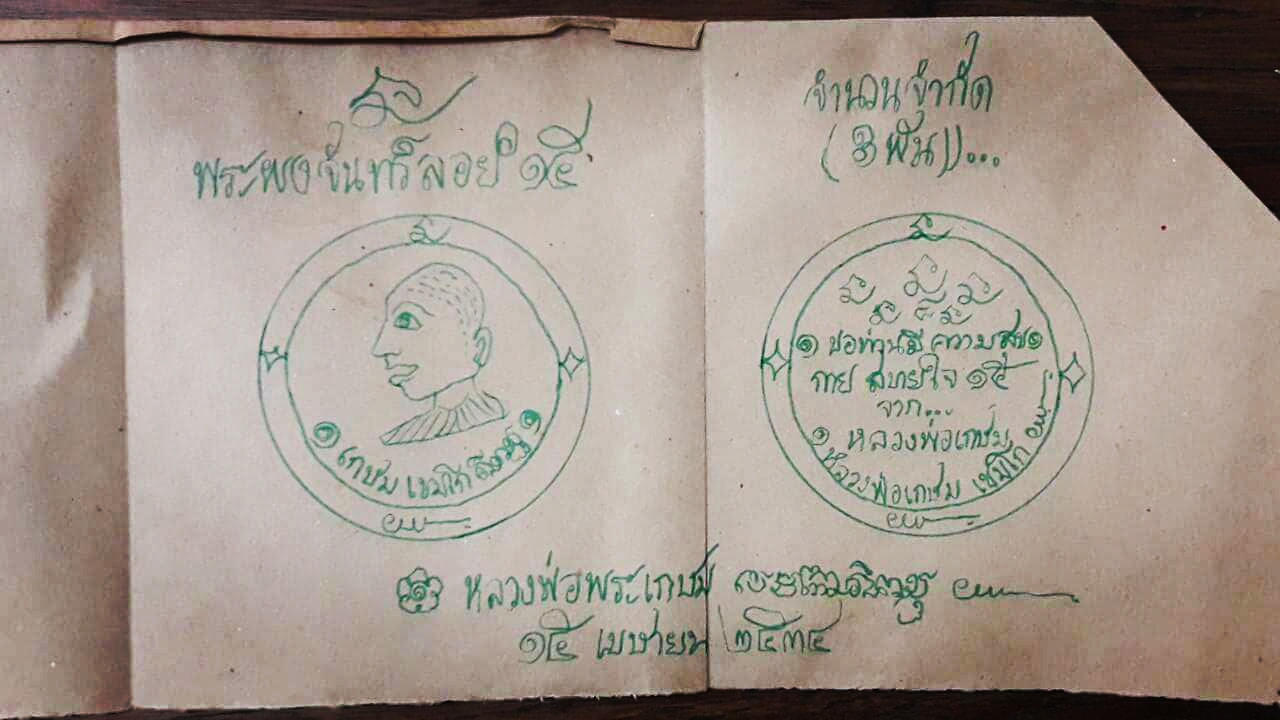 พระผงจันทร์ลอย ๑๕
จำนวนจำกัด
(๓ พัน)...
๑ เกษม เขมโก
๑ ขอท่านมีความสุข ๑
กาย สบายใจ ๑๕
จาก...
๑ หลวงพ่อเกษม
หลวงพ่อเกษม เขมโก
หลวงพ่อพระเกษม
๑๕ เมษายน ๒๕๓๔